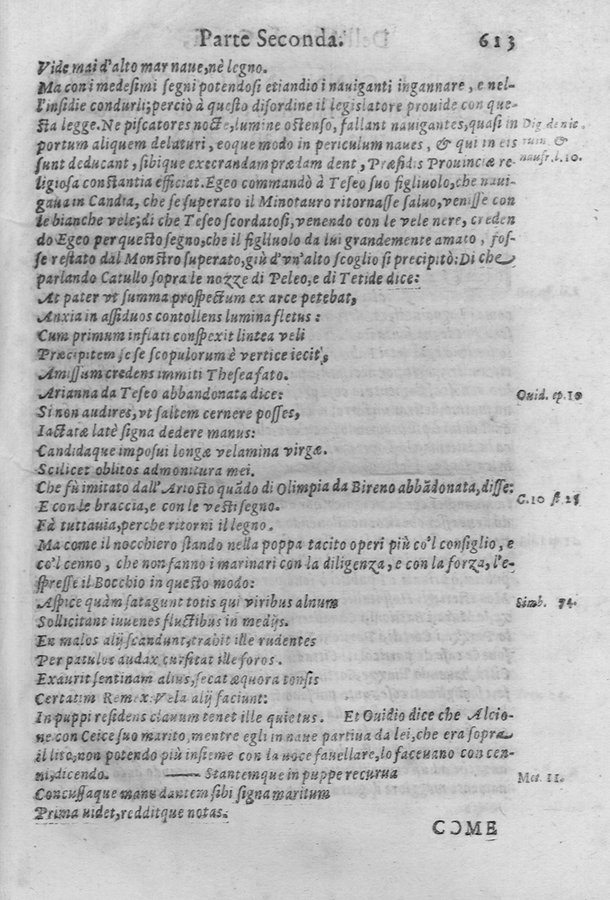 Parte Seconda. 613
Vide mai d'alto mar naue, nè legno.
Ma con i medesimi segni potendosi etiandio i nauiganti ingannare, e nel-
l'insidie condurli; perciò à questo disordine il legislatore prouide con que-
sta legge. Ne piscatores nocte, lumine ostenso, fallant nauigantes, quasi in
portum aliquem delaturi, eoque modo in periculum naues, & qui in eis
sunt deducant, sibique execrandam prædam dent, Præsidis Prouinciæ re-
ligiosa constantia efficiat. Egeo commandò à Teseo suo figliuolo, che naui-
gaua in Candia, che se superato il Minotauro ritornasse saluo, venisse con
le bianche vele; di che Teseo scordatosi, venendo con le vele nere, creden
do Egeo per questo segno, che il figliuolo da lui grandemente amato, fos-
se restato dal Monstro superato, giù d'vn'alto scoglio si precipitò: Di che
parlando Catullo sopra le nozze di Peleo, e di Tetide dice:
At pater vt summa prospectum ex arce petebat,
Anxia in assiduos contollens lumina fletus:
Cum primum inflati conspexit lintea veli
Præcipitem sese scopulorum è vertice iecit,
Amissum credens immiti Thesea fato.
Arianna da Teseo abbandonata dice:
Si non audires, vt saltem cernere posses,
Iactatæ latè signa dedere manus:
Candidaque imposui longæ velamina virgæ.
Scilicet oblitos admonitura mei.
Che fù imitato dall'Ariosto quādo di Olimpia da Bireno abbādonata, disse:
E con le braccia, e con le vesti segno.
Fà tuttauia, perche ritorni il legno.
Ma come il nocchiero stando nella poppa tacito operi più co'l consiglio, e
co'l cenno, che non fanno i marinari con la diligenza, e con la forza, l'e-
spresse il Bocchio in questo modo:
Aspice quàm satagunt totis qui viribus alnum
Sollicitant iuuenes fluctibus in medijs.
En malos alij scandunt, trahit ille rudentes
Per patulos audax cursitat ille foros.
Exaurit sentinam alius, secat æquora tonsis
Certatim Remex: Vela alij faciunt:
In puppi residens clauum tenet ille quietus. Et Ouidio dice che Alcio-
ne con Ceice suo marito, mentre egli in naue partiua da lei, che era sopra
il lito, non potendo più insieme con la uoce fauellare, lo faceuano con cen-
ni, dicendo. —— Stantemque in puppe recurua
Concussaque manu dantem sibi signa maritum
Prima uidet, redditque notas.
COME
Dig. de nic.
rum. &
naufr. l. 10.
Ouid. ep. 10
C. 10 st 25
Simb. 74.
Met. 11.